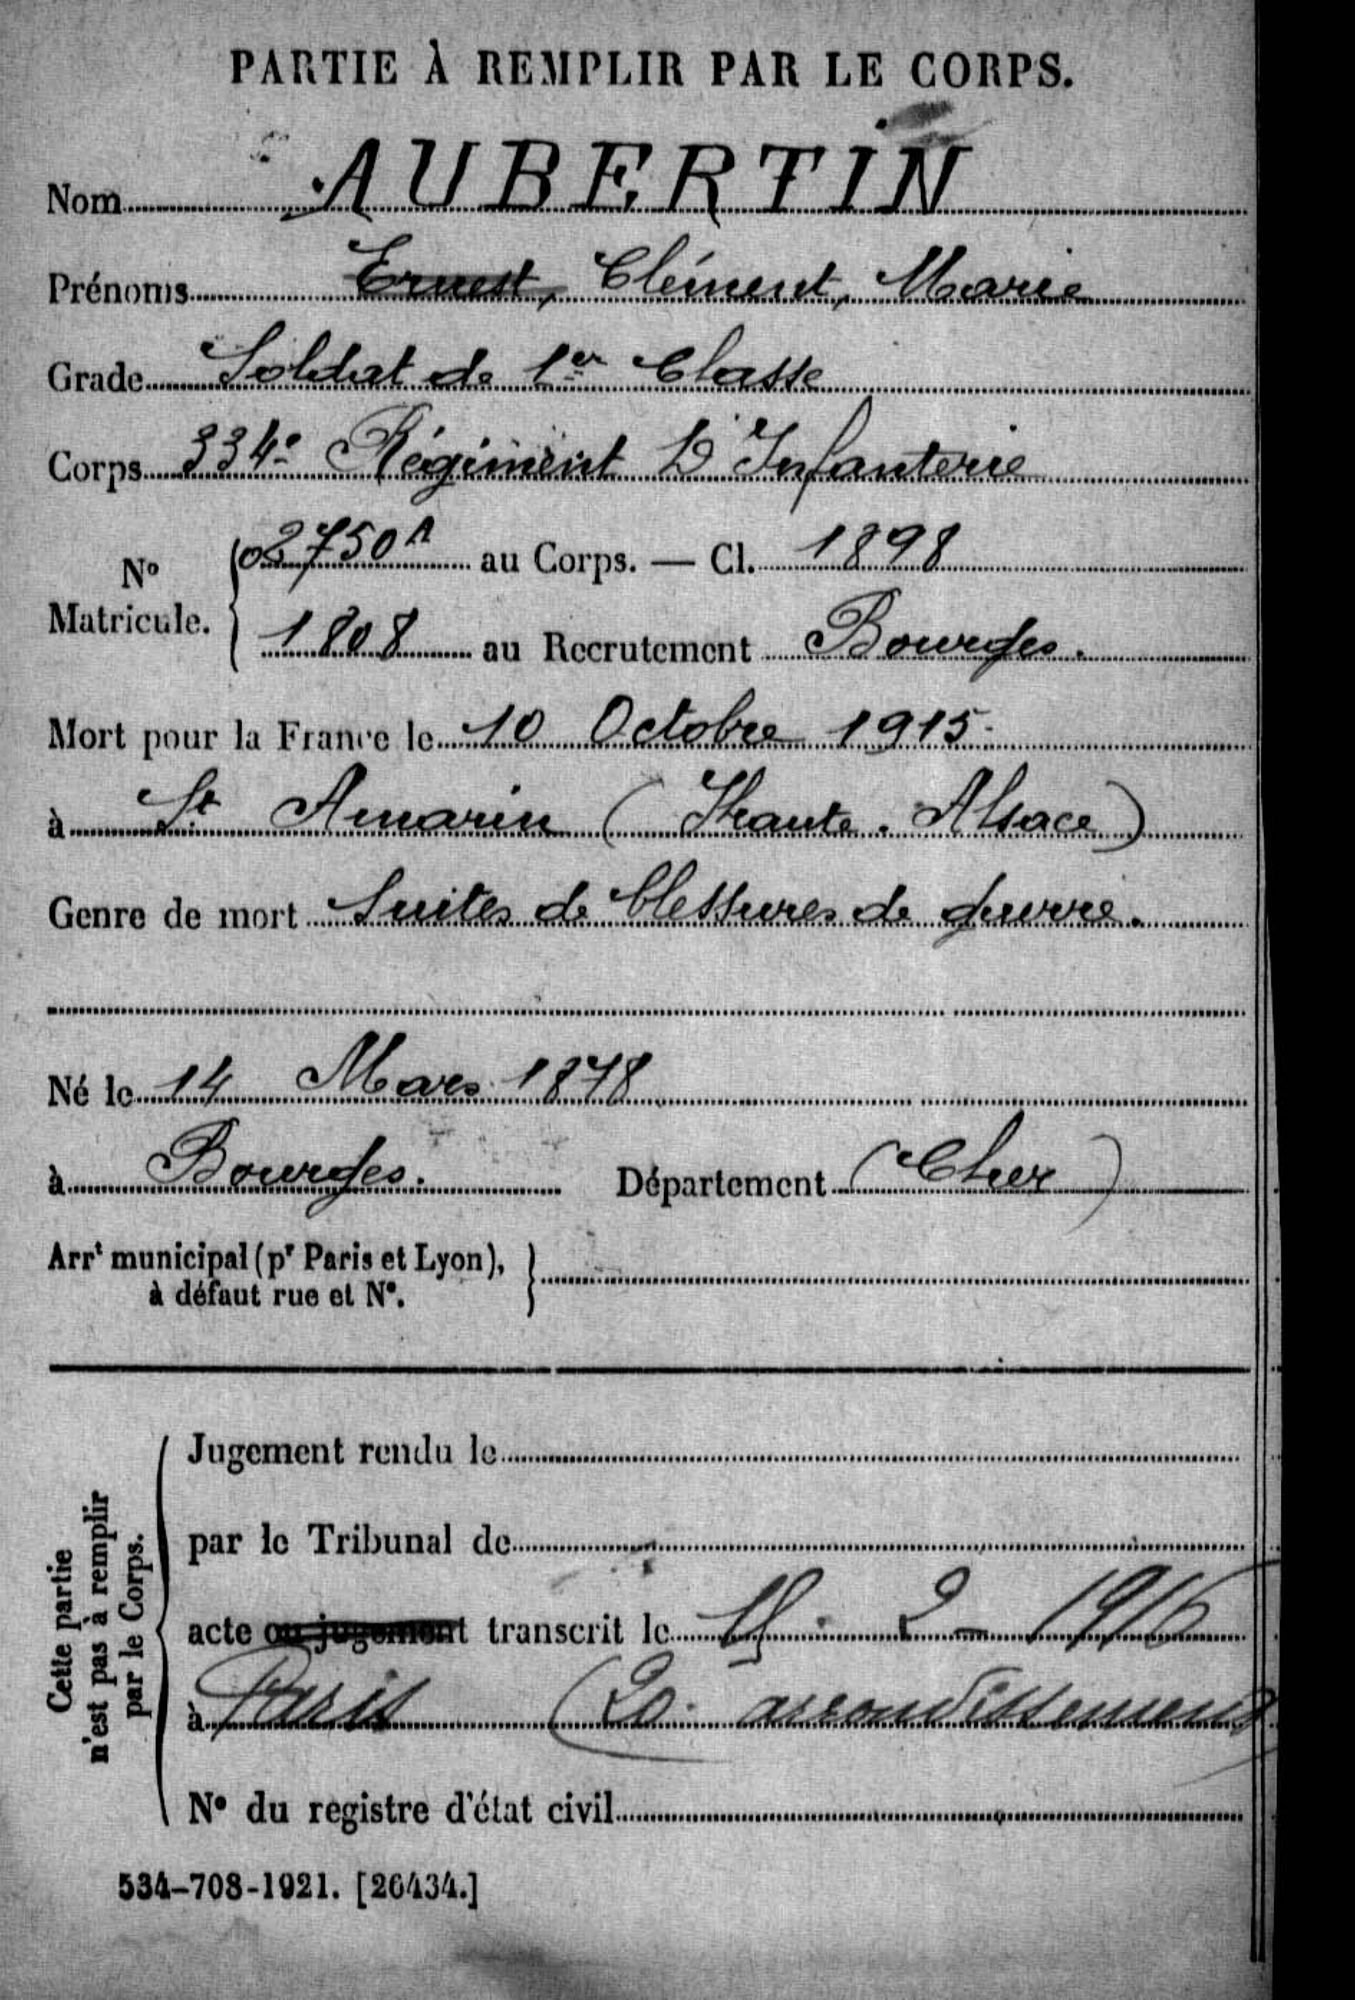 PARTIE À REMPLIR PAR LE CORPS.
Nom AUBERTIN
Prénoms Ernest, Clément, Marie
Grade Soldat de 1er Classe
Corps 334e Régiment D'Infanterie
No Matricule. 02750A au Corps. — Cl. 1898
1808 au Recrutement Bourges.
Mort pour la France le 10 Octobre 1915
à St Amarin (Haute. Alsace)
Genre de mort Suites de blessures de guerre.
Né le 14 Mars 1878
à Bourges. Département (Cher)
Arrt municipal (pr Paris et Lyon),
à défaut rue et No.
Cette partie
n'est pas à remplir
par le Corps.
Jugement rendu le
par le Tribunal de
acte ou jugement transcrit le 2 - 1916
à Paris (20 arrondissement)
No du registre d'état civil
534-708-1921. [26434.]